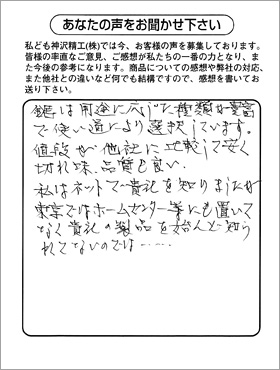 あなたの声をお聞かせ下さい
私ども神沢精工(株)では今、お客様の声を募集しております。
皆様の率直なご意見、ご感想が私たちの一番の力となり、ま
た今後の参考になります。商品についての感想や弊社の対応、
また他社との違いなど何でも結構ですので、感想を書いてお
送り下さい。
鋸は用途に応じた種類が豊富
で使い道により選択しています。
値段が他社に比較して安く
切れ味、品質も良い。
私はネットで貴社を知りましたが
東京ではホームセンター等にも置いて
なく貴社の製品を殆んど知ら
れてないのでは……